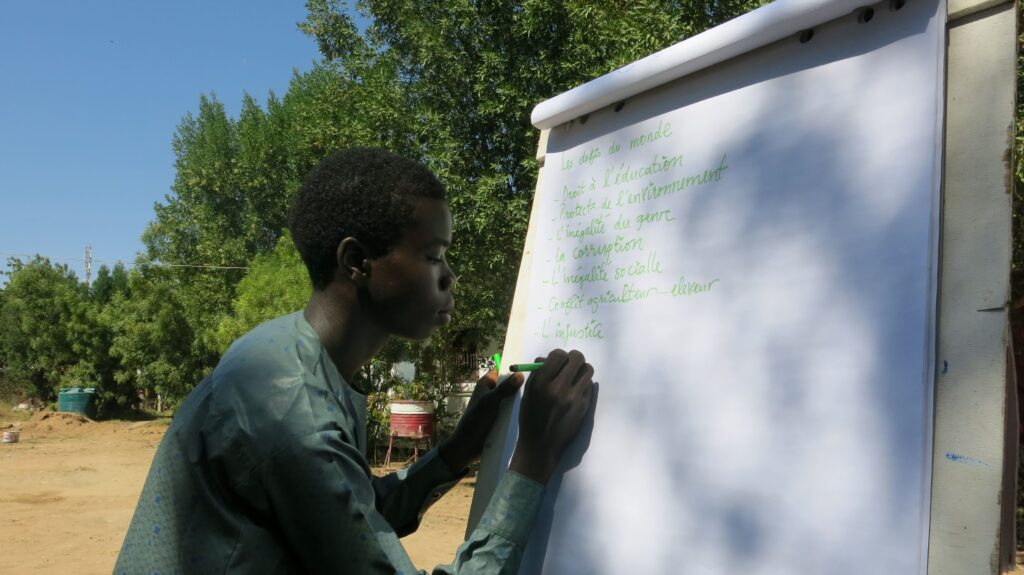 Les defis du monde
- Droit à l'éducation
- Protecte de l'environnement
- L'inégalité du genre
- La corruption
- L'inégalité socialle
- Conflit agriculteur - eleveur
- L'injustice